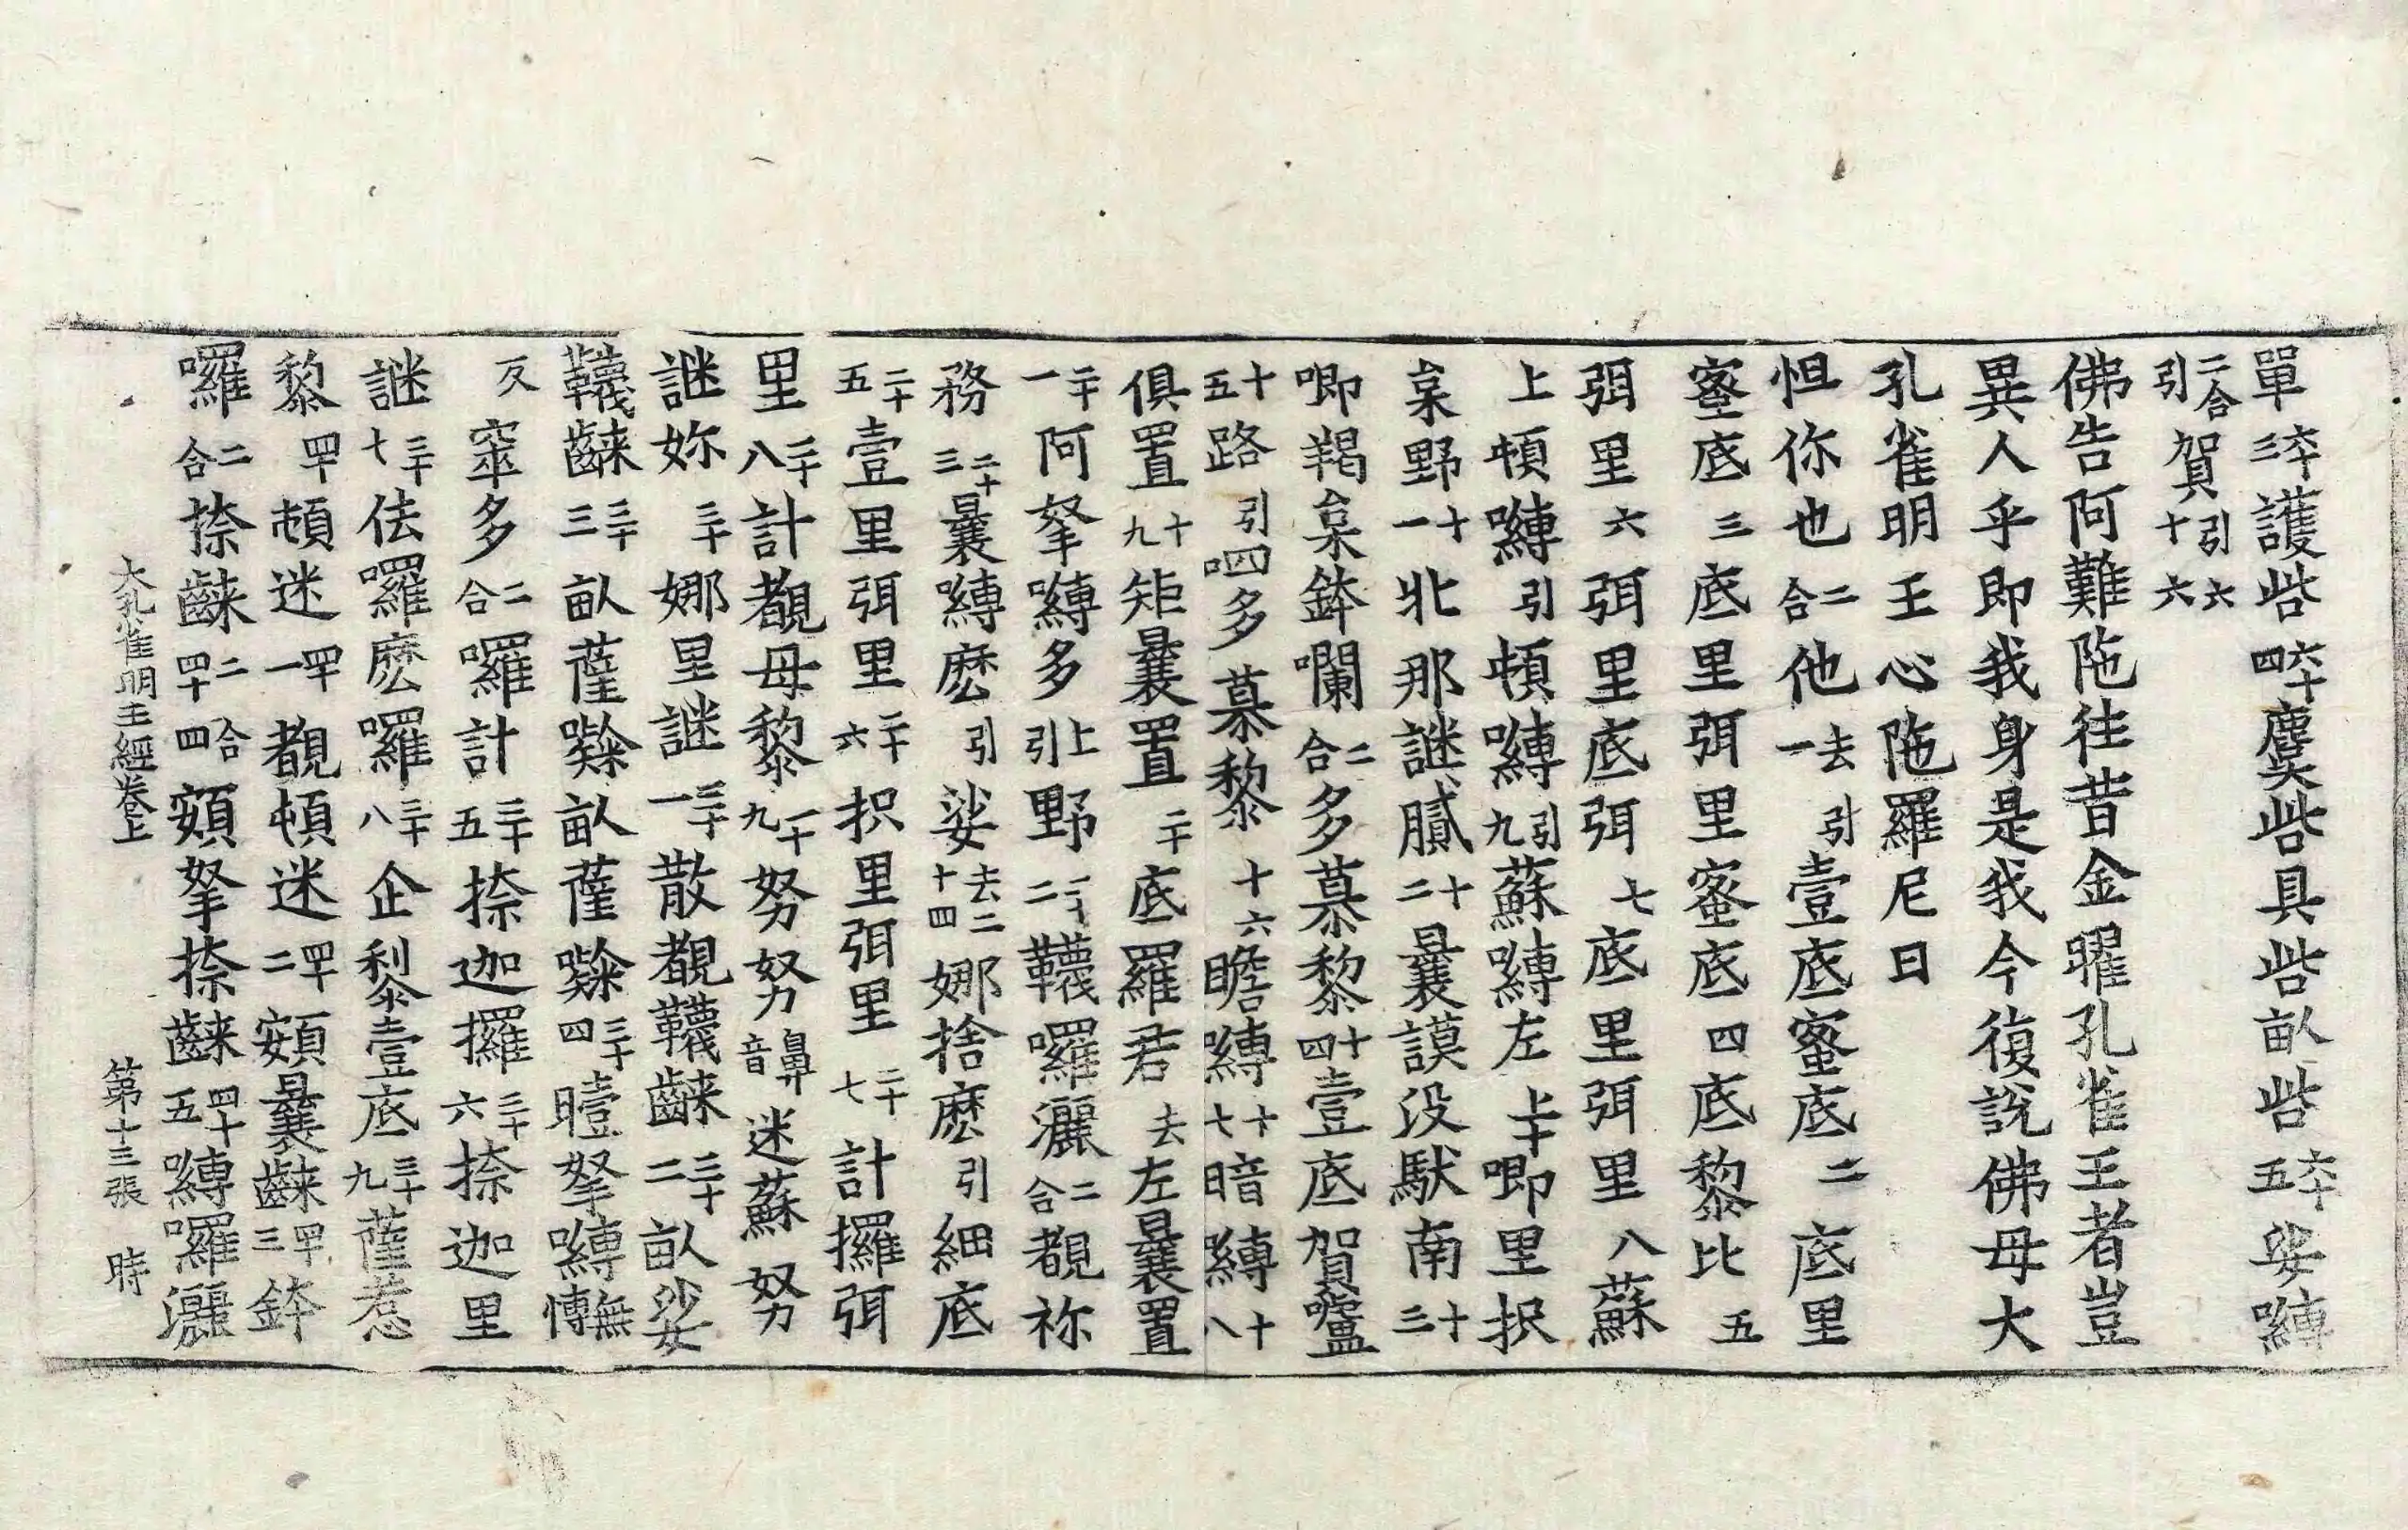 單六十三護呰六十四麌呰具呰畝呰六十五娑嚩
二合引賀引六十六
佛告阿難陁往昔金曜孔雀王者豈
異人乎即我身是我今復說佛母大
孔雀明王心陁羅尼曰
怛你也二合他去引一壹底蜜底二底里
蜜底三底里弭里蜜底四底黎比五
弭里六弭里底弭七底里弭里八蘇
上頓嚩引頓嚩引九蘇嚩左十唧里抧
枲野十一牝那謎膩十二曩謨没馱南十三
唧羯枲鉢囒二合多慕黎十四壹底賀嚧
十五路引呬多慕黎十六瞻嚩十七暗嚩十八
俱置十九矩曩置二十底羅君去左曩置
二十一阿拏嚩多上引野二十二韈囉灑二合覩祢
務二十三曩嚩麽引娑去二十四娜捨麽引細底
二十五壹里弭里二十六抧里弭里二十七計攞弭
里二十八計覩母黎二十九努努鼻音迷蘇努
謎妳三十娜里謎三十一散覩韈䶘三十二畝娑
韈䶘三十三畝薩㘑畝薩㘑三十四曀拏嚩愽無
反窣多二合囉計三十五捺迦攞三十六捺迦里
謎三十七佉囉麽囉三十八企黎壹底三十九薩惹
黎四十頓迷四十一覩頓迷四十二頞曩䶘四十三鉢
囉二合捺䶘二合四十四頞拏捺䶘四十五嚩囉灑
大孔雀明王經卷上　第十三張　時